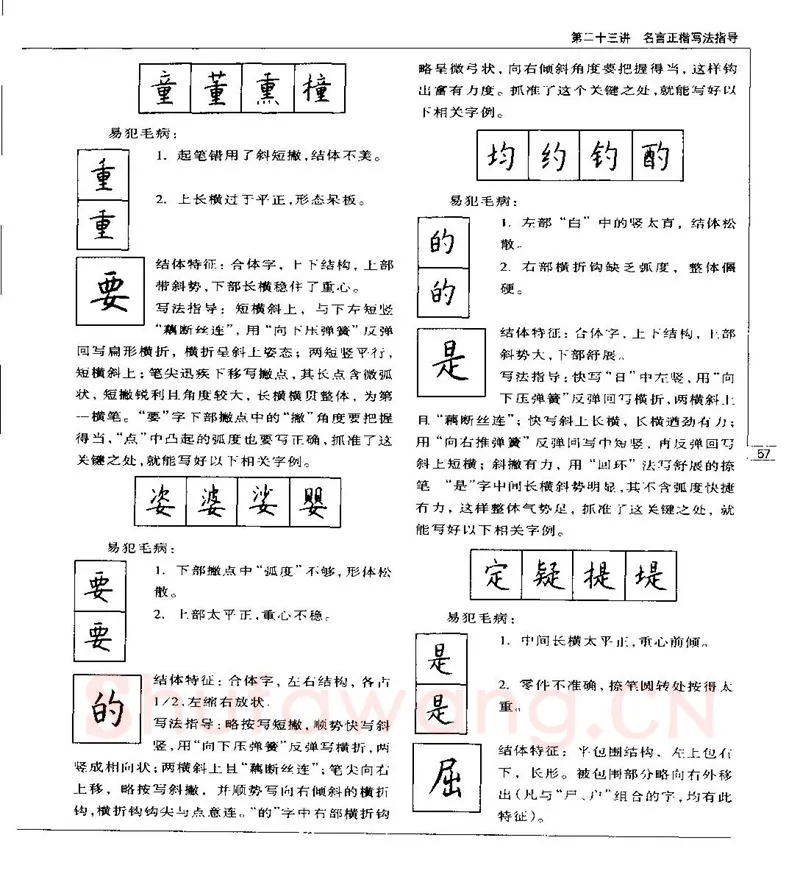 第二十三讲 名言正楷写法指导
童 董 熏 橦
易犯毛病：
重
重
1. 起笔错用了斜短撇，结体不美。
2. 上长横过于平正，形态呆板。
要
结体特征：合体字，上下结构，上部
带斜势，下部长横稳住了重心。
写法指导：短横斜上，与下左短竖
“藕断丝连”，用“向下压弹簧”反弹
回写扁形横折，横折呈斜上姿态；两短竖平行，
短横斜上；笔尖迅疾下移写撇点，其长点含微弧
状，短撇锐利且角度较大，长横横贯整体，为第
一横笔。“要”字下部撇点中的“撇”角度要把握
得当，“点”中凸起的弧度也要写正确，抓准了这
关键之处，就能写好以下相关字例。
姿 婆 娑 婴
易犯毛病：
要
要
1. 下部撇点中“弧度”不够，形体松
散。
2. 上部太平正，重心不稳。
的
结体特征：合体字，左右结构，各占
1/2，左缩右放状。
写法指导：略按写短撇，顺势快写斜
竖，用“向下压弹簧”反弹写横折，两
竖成相向状；两横斜上且“藕断丝连”；笔尖向右
上移，略按写斜撇，并顺势写向右倾斜的横折
钩，横折钩钩尖与点意连。“的”字中右部横折钩
略呈微弓状，向右倾斜角度要把握得当，这样钩
出富有力度。抓准了这个关键之处，就能写好以
下相关字例。
均 约 钓 酌
易犯毛病：
的
的
1. 左部“白”中的竖太直，结体松
散。
2. 右部横折钩缺乏弧度，整体僵
硬。
是
结体特征：合体字，上下结构，上部
斜势大，下部舒展。
写法指导：快写“日”中左竖，用“向
下压弹簧”反弹回写横折，两横斜上
且“藕断丝连”；快写斜上长横，长横遒劲有力；
用“向右推弹簧”反弹回写中短竖，再反弹回写
斜上短横；斜撇有力，用“回环”法写舒展的捺
笔 “是”字中间长横斜势明显，其不含弧度快捷
有力，这样整体气势足，抓准了这关键之处，就
能写好以下相关字例。
定 疑 提 堤
易犯毛病：
是
是
1. 中间长横太平正，重心前倾。
2. 零件不准确，捺笔圆转处按得太
重。
屈
结体特征：半包围结构，左上包右
下，长形。被包围部分略向右外移
出（凡与“尸、户”组合的字，均有此
特征）。
57
Shufawang.CN